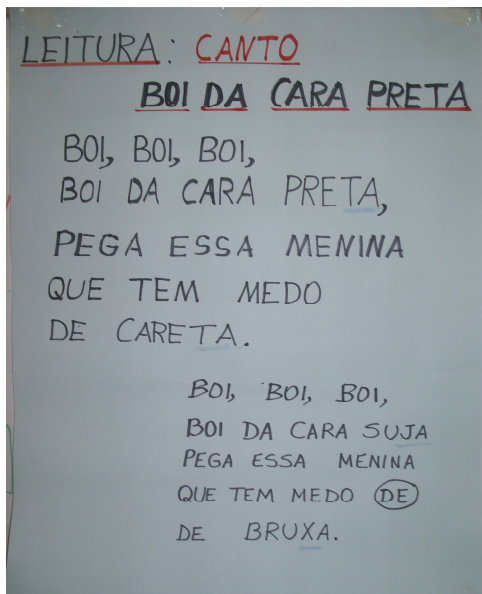 LEITURA: CANTO
BOI DA CARA PRETA
BOI, BOI, BOI,
BOI DA CARA PRETA,
PEGA ESSA MENINA
QUE TEM MEDO
DE CARETA.
BOI, BOI, BOI,
BOI DA CARA SUJA
PEGA ESSA MENINA
QUE TEM MEDO DE
DE BRUXA.